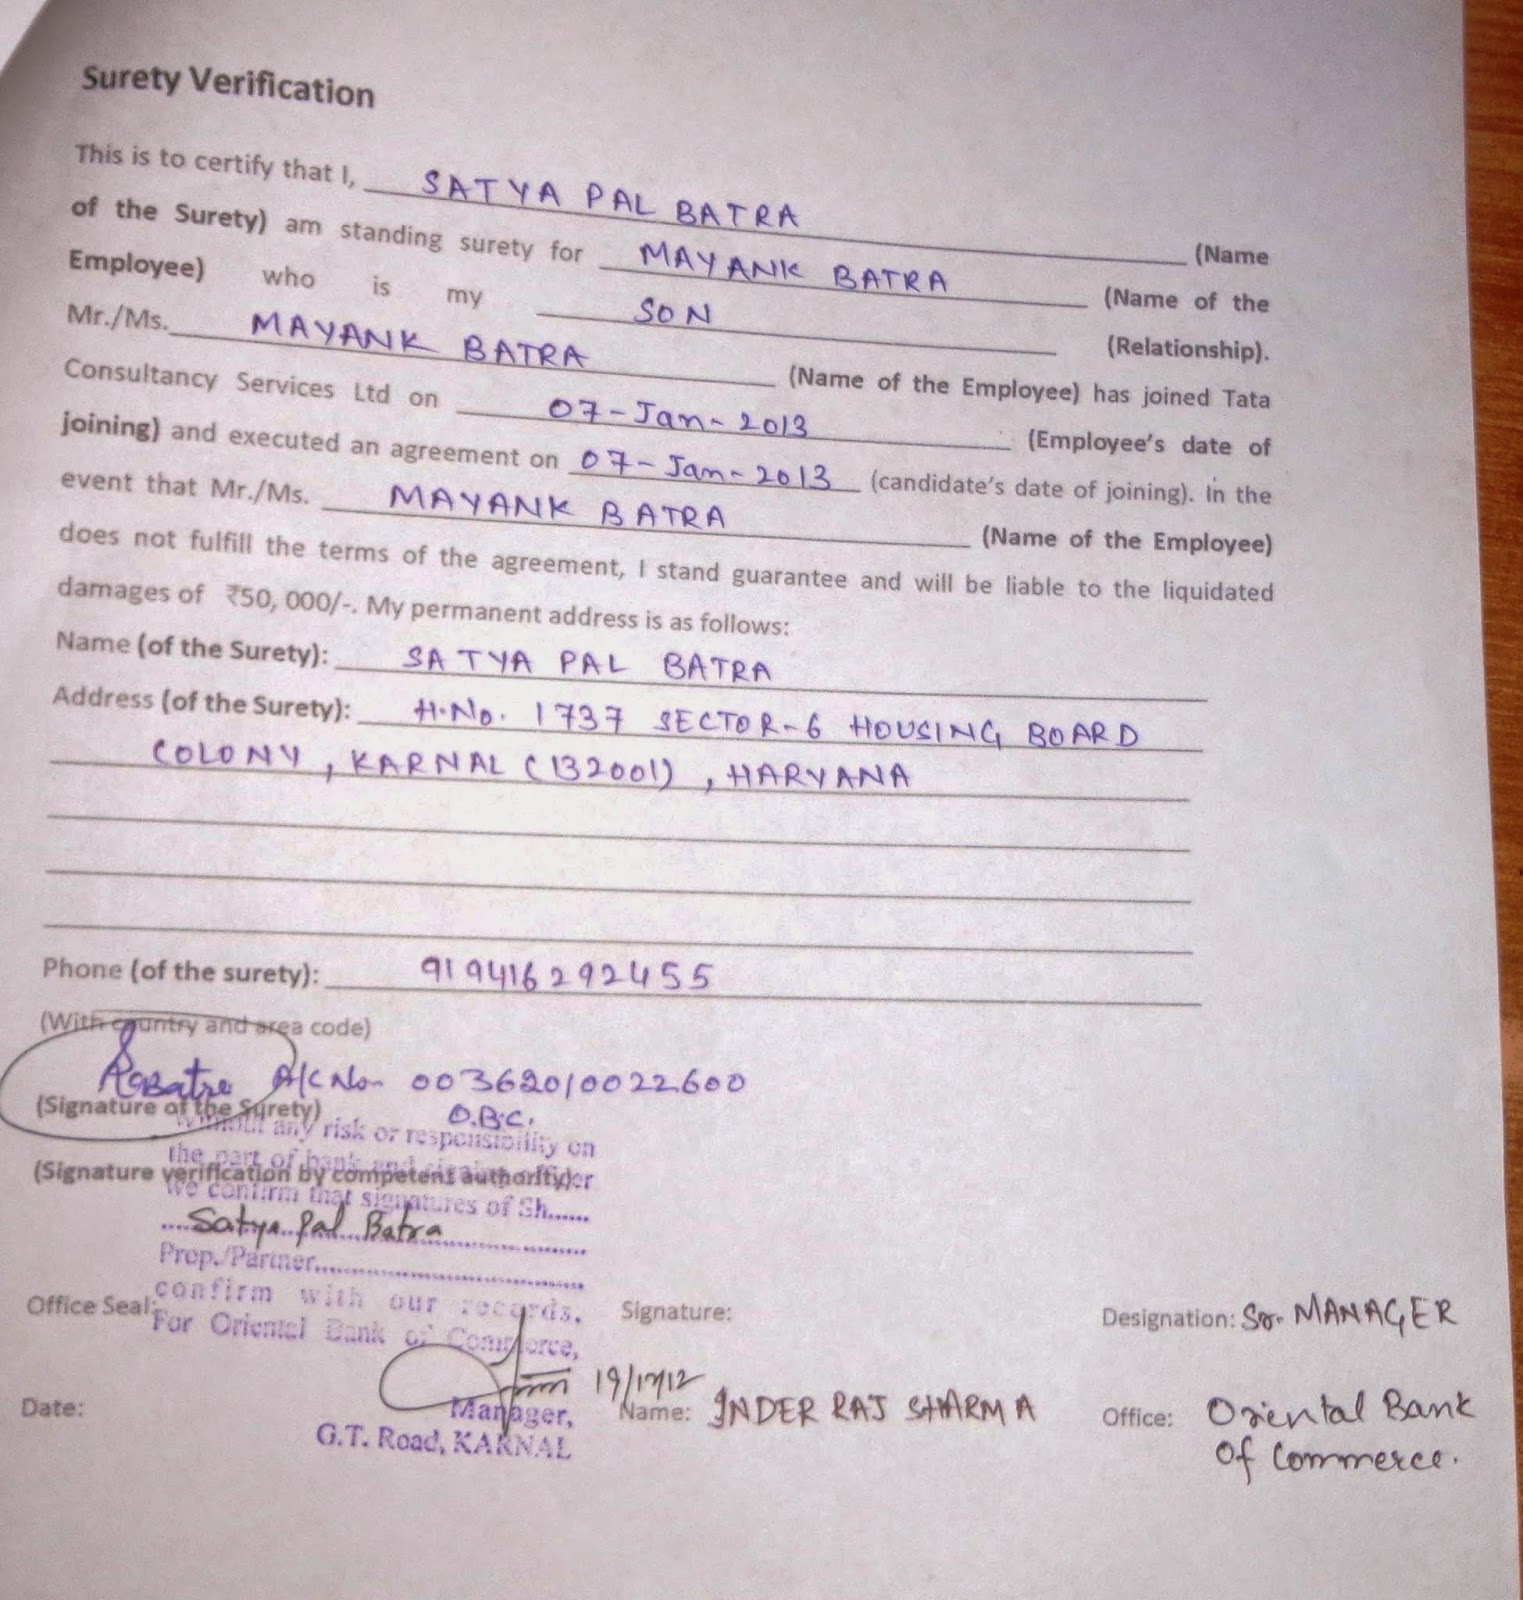 Surety Verification
This is to certify that I, SATYA PAL BATRA (Name
of the Surety) am standing surety for MAYANK BATRA (Name of the
Employee) who is my SON (Relationship).
Mr./Ms. MAYANK BATRA (Name of the Employee) has joined Tata
Consultancy Services Ltd on 07-Jan-2013 (Employee's date of
joining) and executed an agreement on 07-Jan-2013 (candidate's date of joining). In the
event that Mr./Ms. MAYANK BATRA (Name of the Employee)
does not fulfill the terms of the agreement, I stand guarantee and will be liable to the liquidated
damages of ₹50, 000/-. My permanent address is as follows:
Name (of the Surety): SATYA PAL BATRA
Address (of the Surety): H.No. 1737 SECTOR-6 HOUSING BOARD
COLONY, KARNAL (132001), HARYANA
Phone (of the surety): 919416292455
(With country and area code)
A/C No- 00362010022600
(Signature of the Surety) O.B.C.
Without any risk or responsibility on
the part of bank and signing officer
(Signature verification by competent authority):
We confirm that signatures of Sh......
Satya Pal Batra
Prop./Partner
confirm with our records.
Office Seal: Signature: Designation: Sr. MANAGER
For Oriental Bank of Commerce,
19/12/12
Date: Manager, Name: INDER RAJ SHARMA Office: Oriental Bank
G.T. Road, KARNAL Of Commerce.